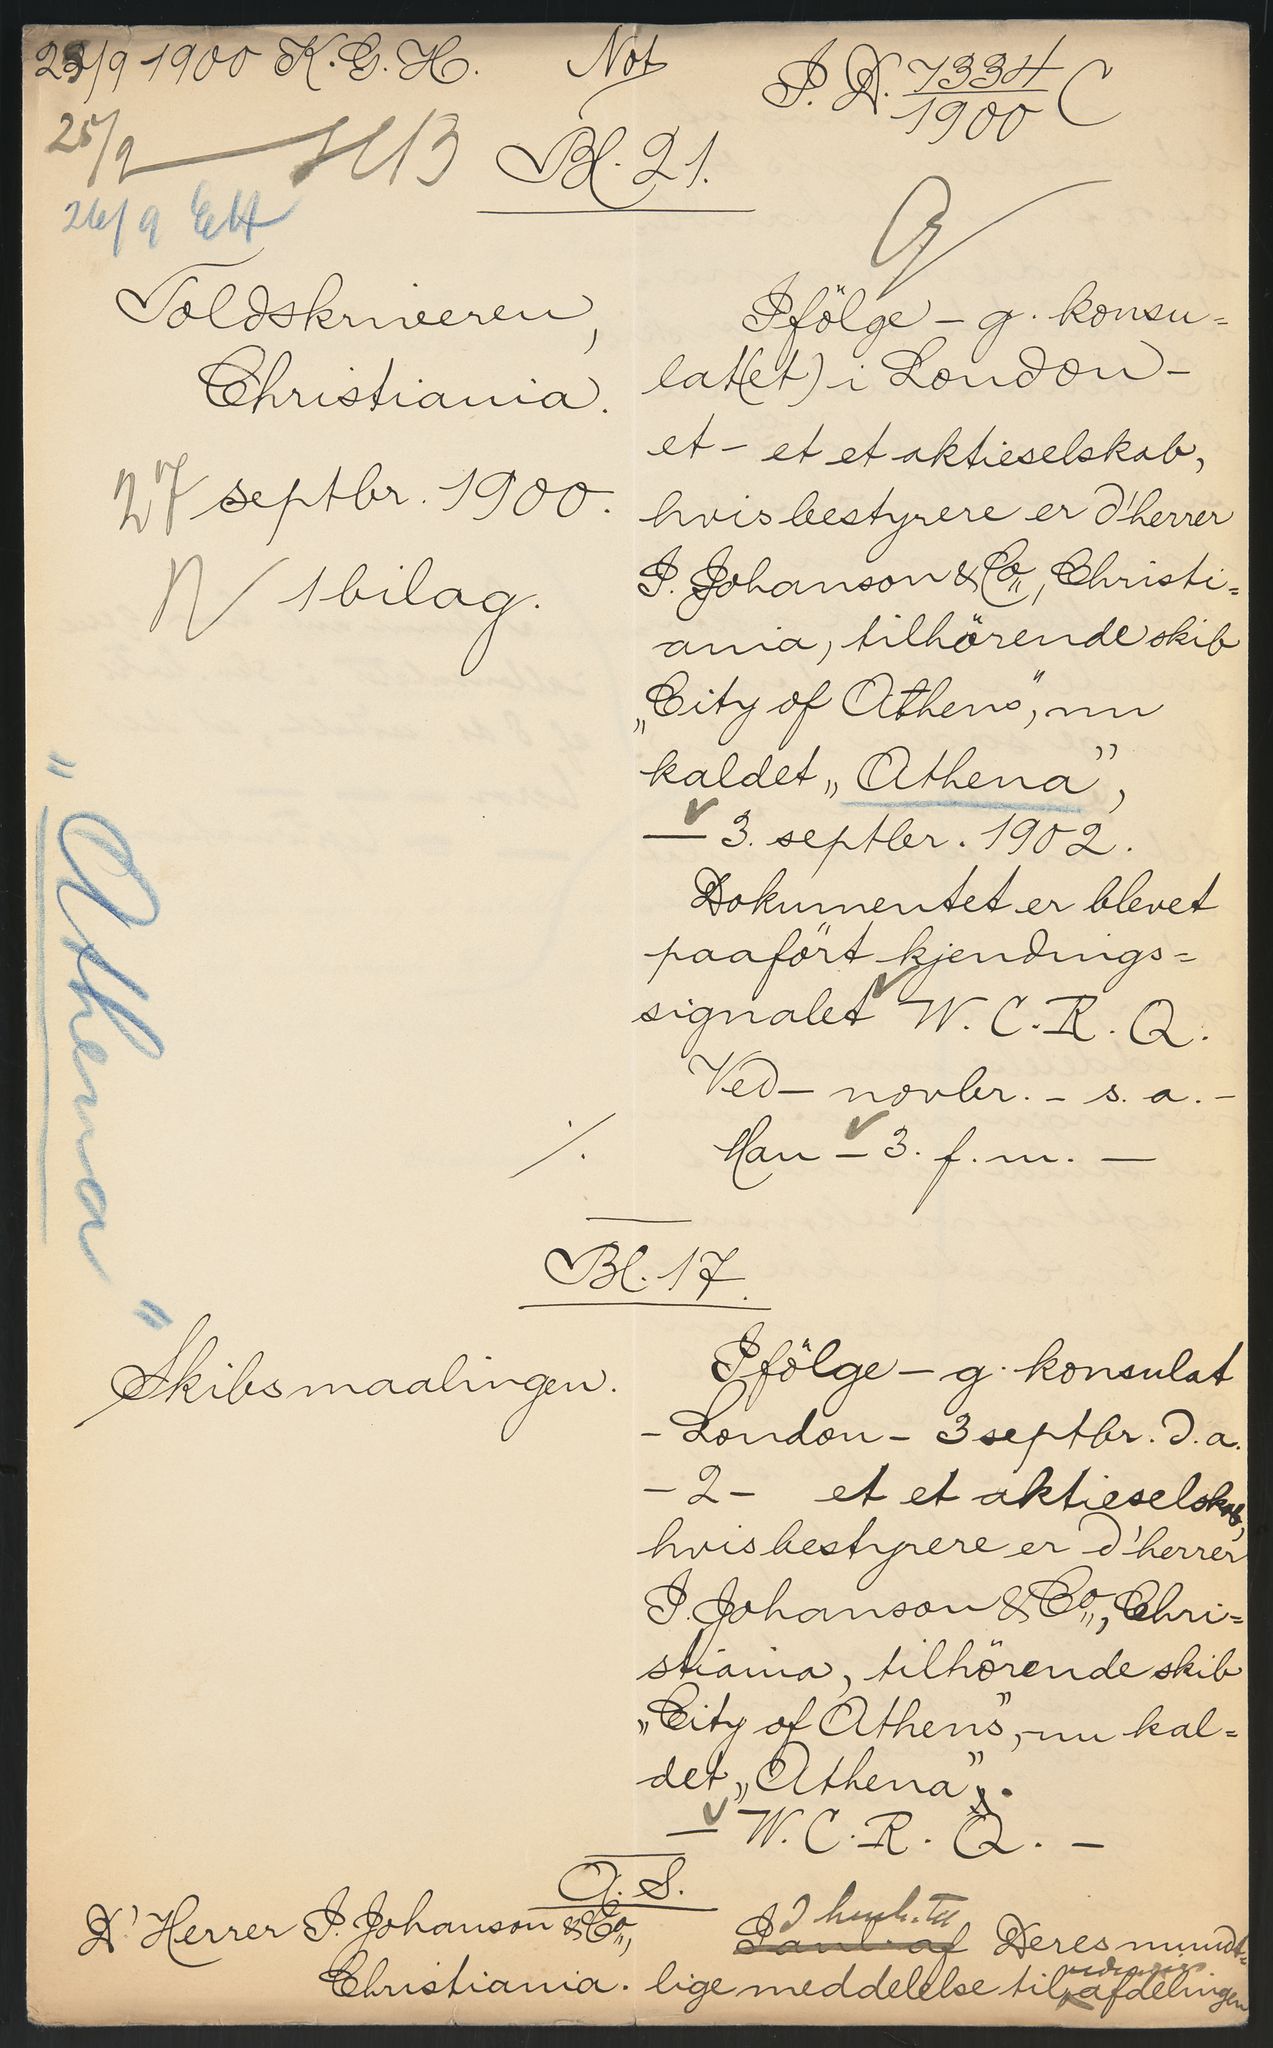 25/9 1900 K. G. H. Not J. N. 7334/1900 C
25/9
26/9 EH
Bl. 21.
Toldskriveren,
Christiania.
27 septbr. 1900.
1 bilag.
"Athena"
Ifölge – g. konsu=
lat(et) i London –
et – et et aktieselskab,
hvis bestyrere er d'herrer
J. Johanson & Co., Christi=
ania, tilhörende skib
„City of Athens", nu
kaldet „Athena",
— 3. septbr. 1902.
Dokumentet er blevet
paafört kjendings=
signalet W. C. R. Q.
Ved – novbr. – s. a. –
Man – 3. f. m. —
./.
Bl. 17.
Skibsmaalingen.
Ifölge – g. konsulat
– London – 3 septbr. d. a.
– 2 – et et aktieselskab,
hvis bestyrere er d'herrer
J. Johanson & Co., Chri=
stiania, tilhörende skib
„City of Athens", nu kal=
det „Athena".
— W. C. R. Q. —
A. S.
D' Herrer J. Johanson & Co.,
Christiania.
I henh. til
Deres mundt=
lige meddelelse til afdelingen